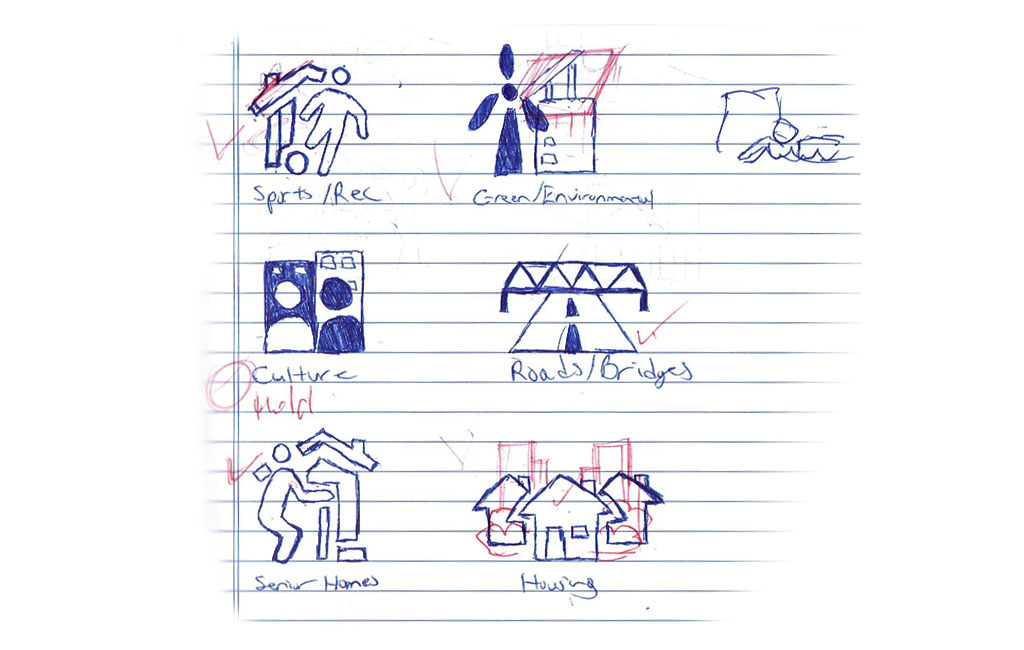 Sports/Rec
Green/Environmental
Culture
Hold
Roads/Bridges
Senior Homes
Housing